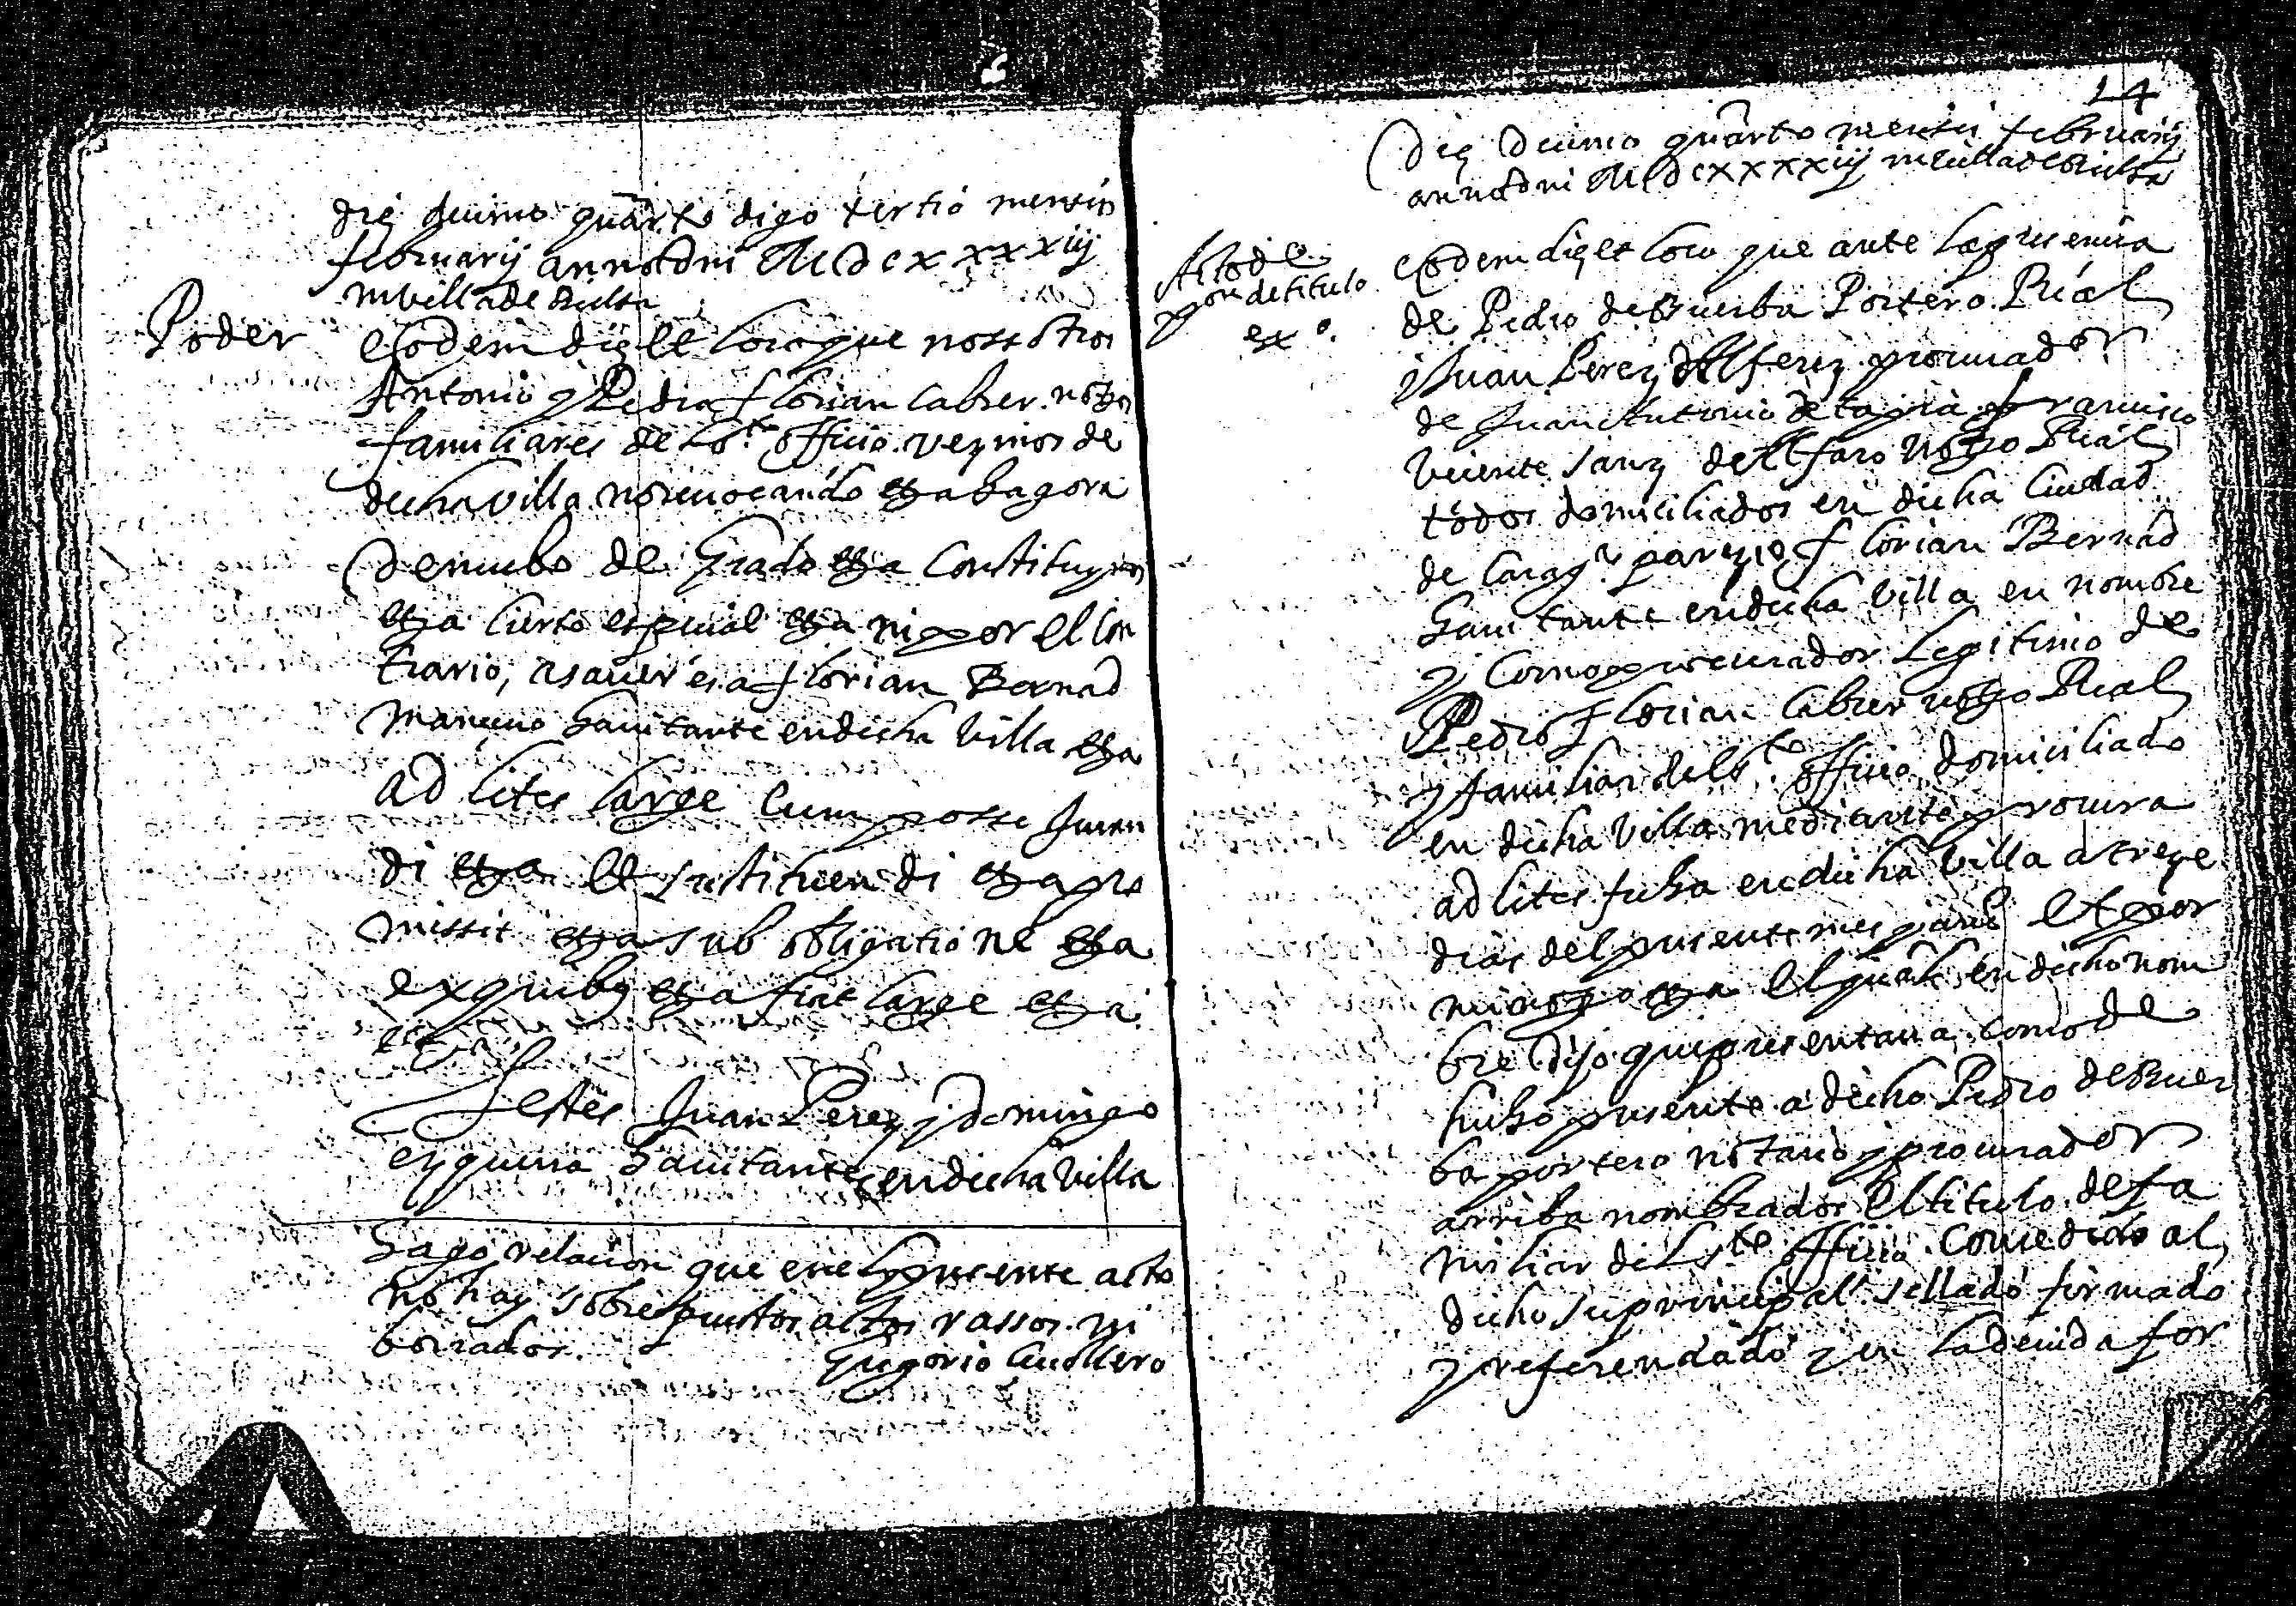 die decimo quarto digo tertio mensis
februarij anno dni MDcxxxxiiij
in villa de
Poder
Eodem die et loco que nosotros
Antonio y Pedro Florian Cabrer notos
familiares del Sto officio vezinos de
dicha villa no reuocando etza ha agora
de nuebo de Grado etza Constituymos
etza cierto especial etza ni por el con
trario, asauer es a Florian Bernad
mançeuo hauitante en dicha Villa etza
ad lites large cum posse Juran
di etza et sustituendi etza pro
missit etza sub obligatione etza
ex quibus etza fiat large etza
Testes Juan Perez y domingo
ezquerra hauitantes en dicha Villa
hago relacion que en el presente acto
no hay sobrepuestos altos rassos ni
borrados. Gregorio Cuollero
14
Die Decimo quarto mensis februarij
anno dni MDcxxxxiiij in villa de
Acto de
pon de titulo
exo.
Eodem die et loco que ante la presencia
de Pedro de Buerba Portero Real
y Juan Perez Alferez procurador
de Juan Antonio de tapia y francisco
Vicente Sanz de Alfaro Noto Real
todos domiciliados en dicha Ciudad
de Caragça parezio Florian Bernad
hauitante en dicha Villa en nombre
y Como procurador legitimo de
Pedro Florian Cabrer noto Real
y familiar del Sto officio domiciliado
en dicha Villa mediante procura
ad lites fecha en dicha Villa a treze
dias del presente mes et por
etza el qual en dicho nom
bre dijo que presentaua como de
hecho presento a dicho Pedro de Buer
ba portero notario y procurador
arriba nombrados el titulo de fa
miliar del Sto officio Concedido al
dicho su principal sellado firmado
y referendado y en la deuida for